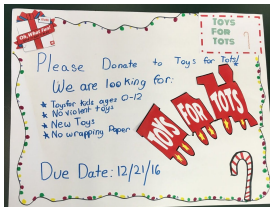 Oh, What Fun!
TOYS
FOR
TOTS
Please Donate to Toys for Tots!
We are looking for:
* Toys for kids ages 0-12
* No violent toys
* New Toys
* No wrapping Paper
TOYS FOR TOTS
Due Date: 12/21/16